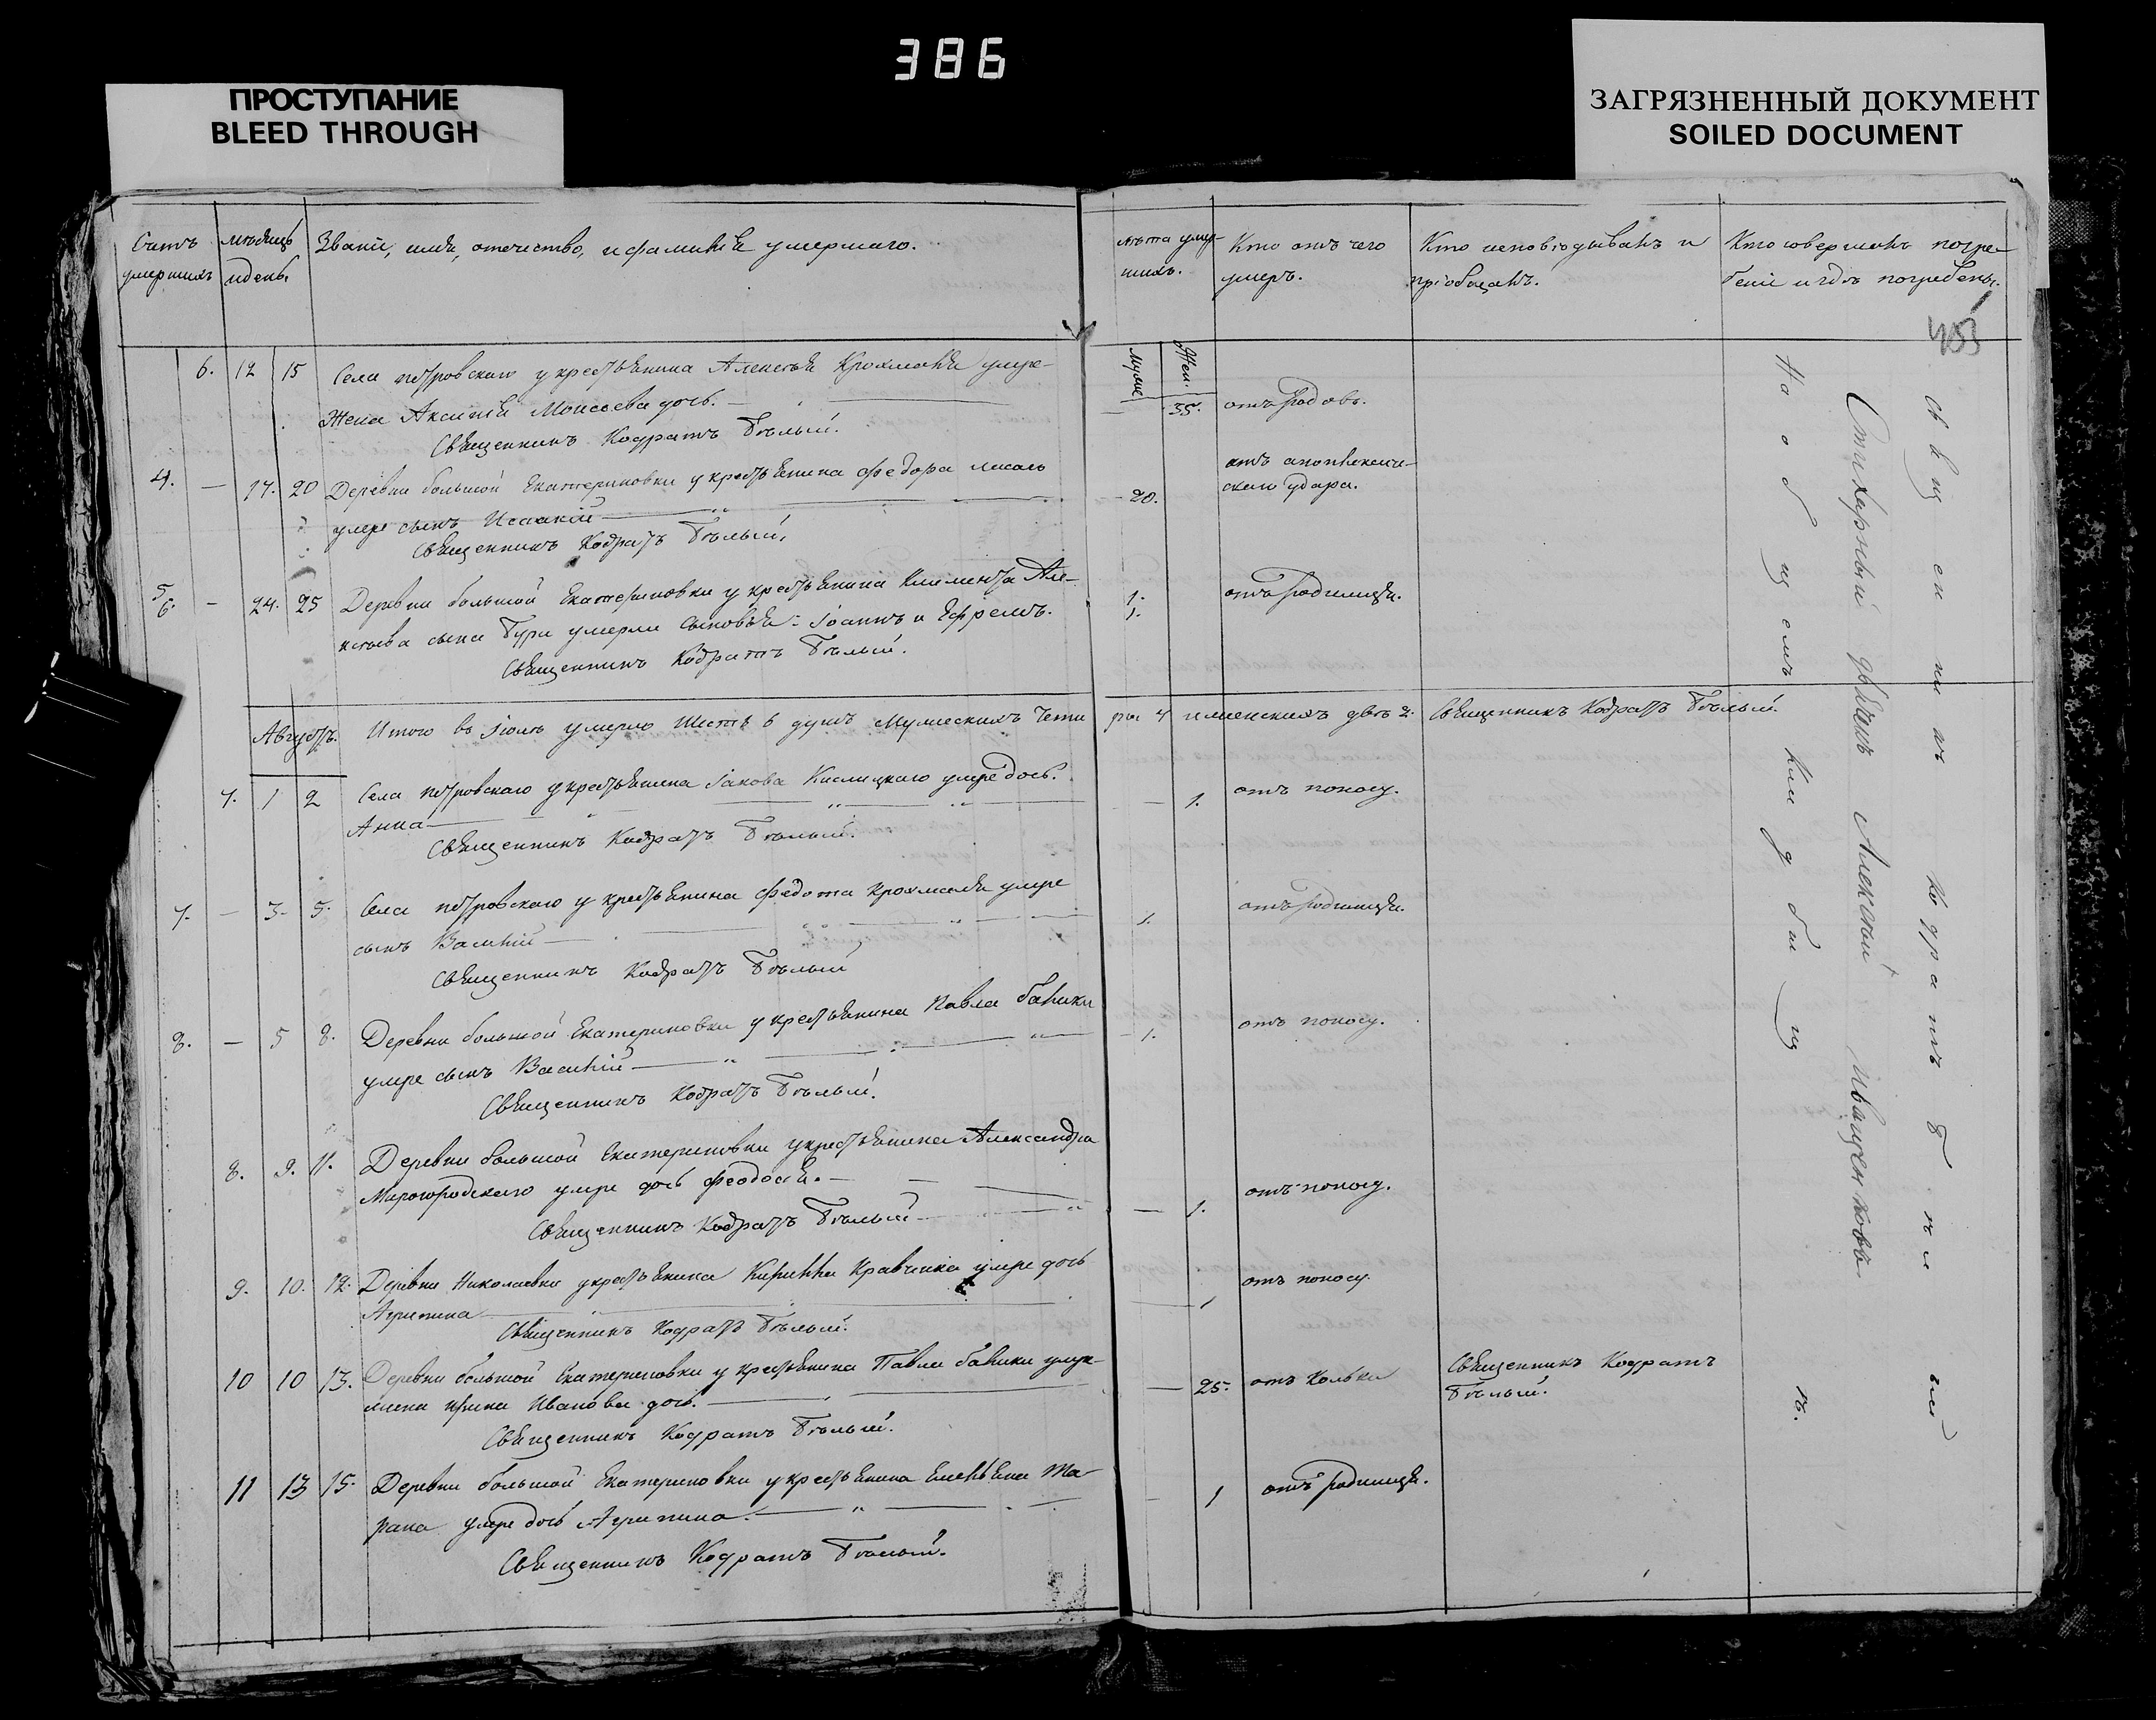 386
ПРОСТУПАНИЕ
BLEED THROUGH
ЗАГРЯЗНЕННЫЙ ДОКУМЕНТ
SOILED DOCUMENT
Счетъ умершихъ
мѣсяцъ и день
Званіе, имя, отечество, и фамилія умершаго.
лѣта умершихъ.
Кто отъ чего умеръ.
Кто исповѣдывалъ и пріобщалъ.
Кто совершалъ погребеніе и гдѣ погребены.
Муже Жен:
6. 12 15 Села петровскаго у крестьянина Алексѣя Крохмаля умре
жена Аксинія Моисеева дочь. 35. отъ родовъ.
Священникъ Кодратъ Бѣлый.
4. — 17. 20 Деревни большой Екатериновки у крестьянина Федора
умре сынъ Исаакій 20. отъ апоплексическаго удара.
Священникъ Кодратъ Бѣлый.
5. 6. — 24. 25 Деревни большой Екатериновки у крестьянина Климента Але-
ксѣева сына Гури умерли сыновья: Іоаннъ и Ефремъ. 1. 1. отъ родимца.
Священникъ Кодратъ Бѣлый.
Итого въ іюлѣ умерло шесть 6 душъ мужескихъ четы ры 4 и женскихъ двѣ 2. Священникъ Кодратъ Бѣлый.
Августъ.
7. 1 2 Села петровскаго у крестьянина Іакова Кислицкаго умре дочь
Анна — 1. отъ поносу.
Священникъ Кодратъ Бѣлый.
7. — 3. 5. Села петровскаго у крестьянина Федота Крохмаля умре
сынъ Василій 1. отъ родимца.
Священникъ Кодратъ Бѣлый
8. — 5 8. Деревни большой Екатериновки у крестьянина Павла Галики
умре сынъ Василій — 1. отъ поносу.
Священникъ Кодратъ Бѣлый.
8. 9. 11. Деревни большой Екатериновки у крестьянина Александра
Миргородскаго умре дочь Феодосія. — 1. отъ поносу.
Священникъ Кодратъ Бѣлый
9. 10. 12. Деревни Николаевки у крестьянина Кирилла Кравчика умре дочь
Агрипина — 1 отъ поносу.
Священникъ Кодратъ Бѣлый.
10 10 13. Деревни большой Екатериновки у крестьянина Павла Галики умре
жена Ирина Иванова дочь. — 25. отъ Кольки Священникъ Кодратъ Бѣлый.
Священникъ Кодратъ Бѣлый.
11 13 15. Деревни большой Екатериновки у крестьянина Емельяна Та-
рана умре дочь Агрипина — 1 отъ родимца.
Священникъ Кодратъ Бѣлый.
Священникъ Кодратъ Бѣлый
Стихарный дьячекъ Алексѣй Иващенковъ
На общемъ кладбищѣ.